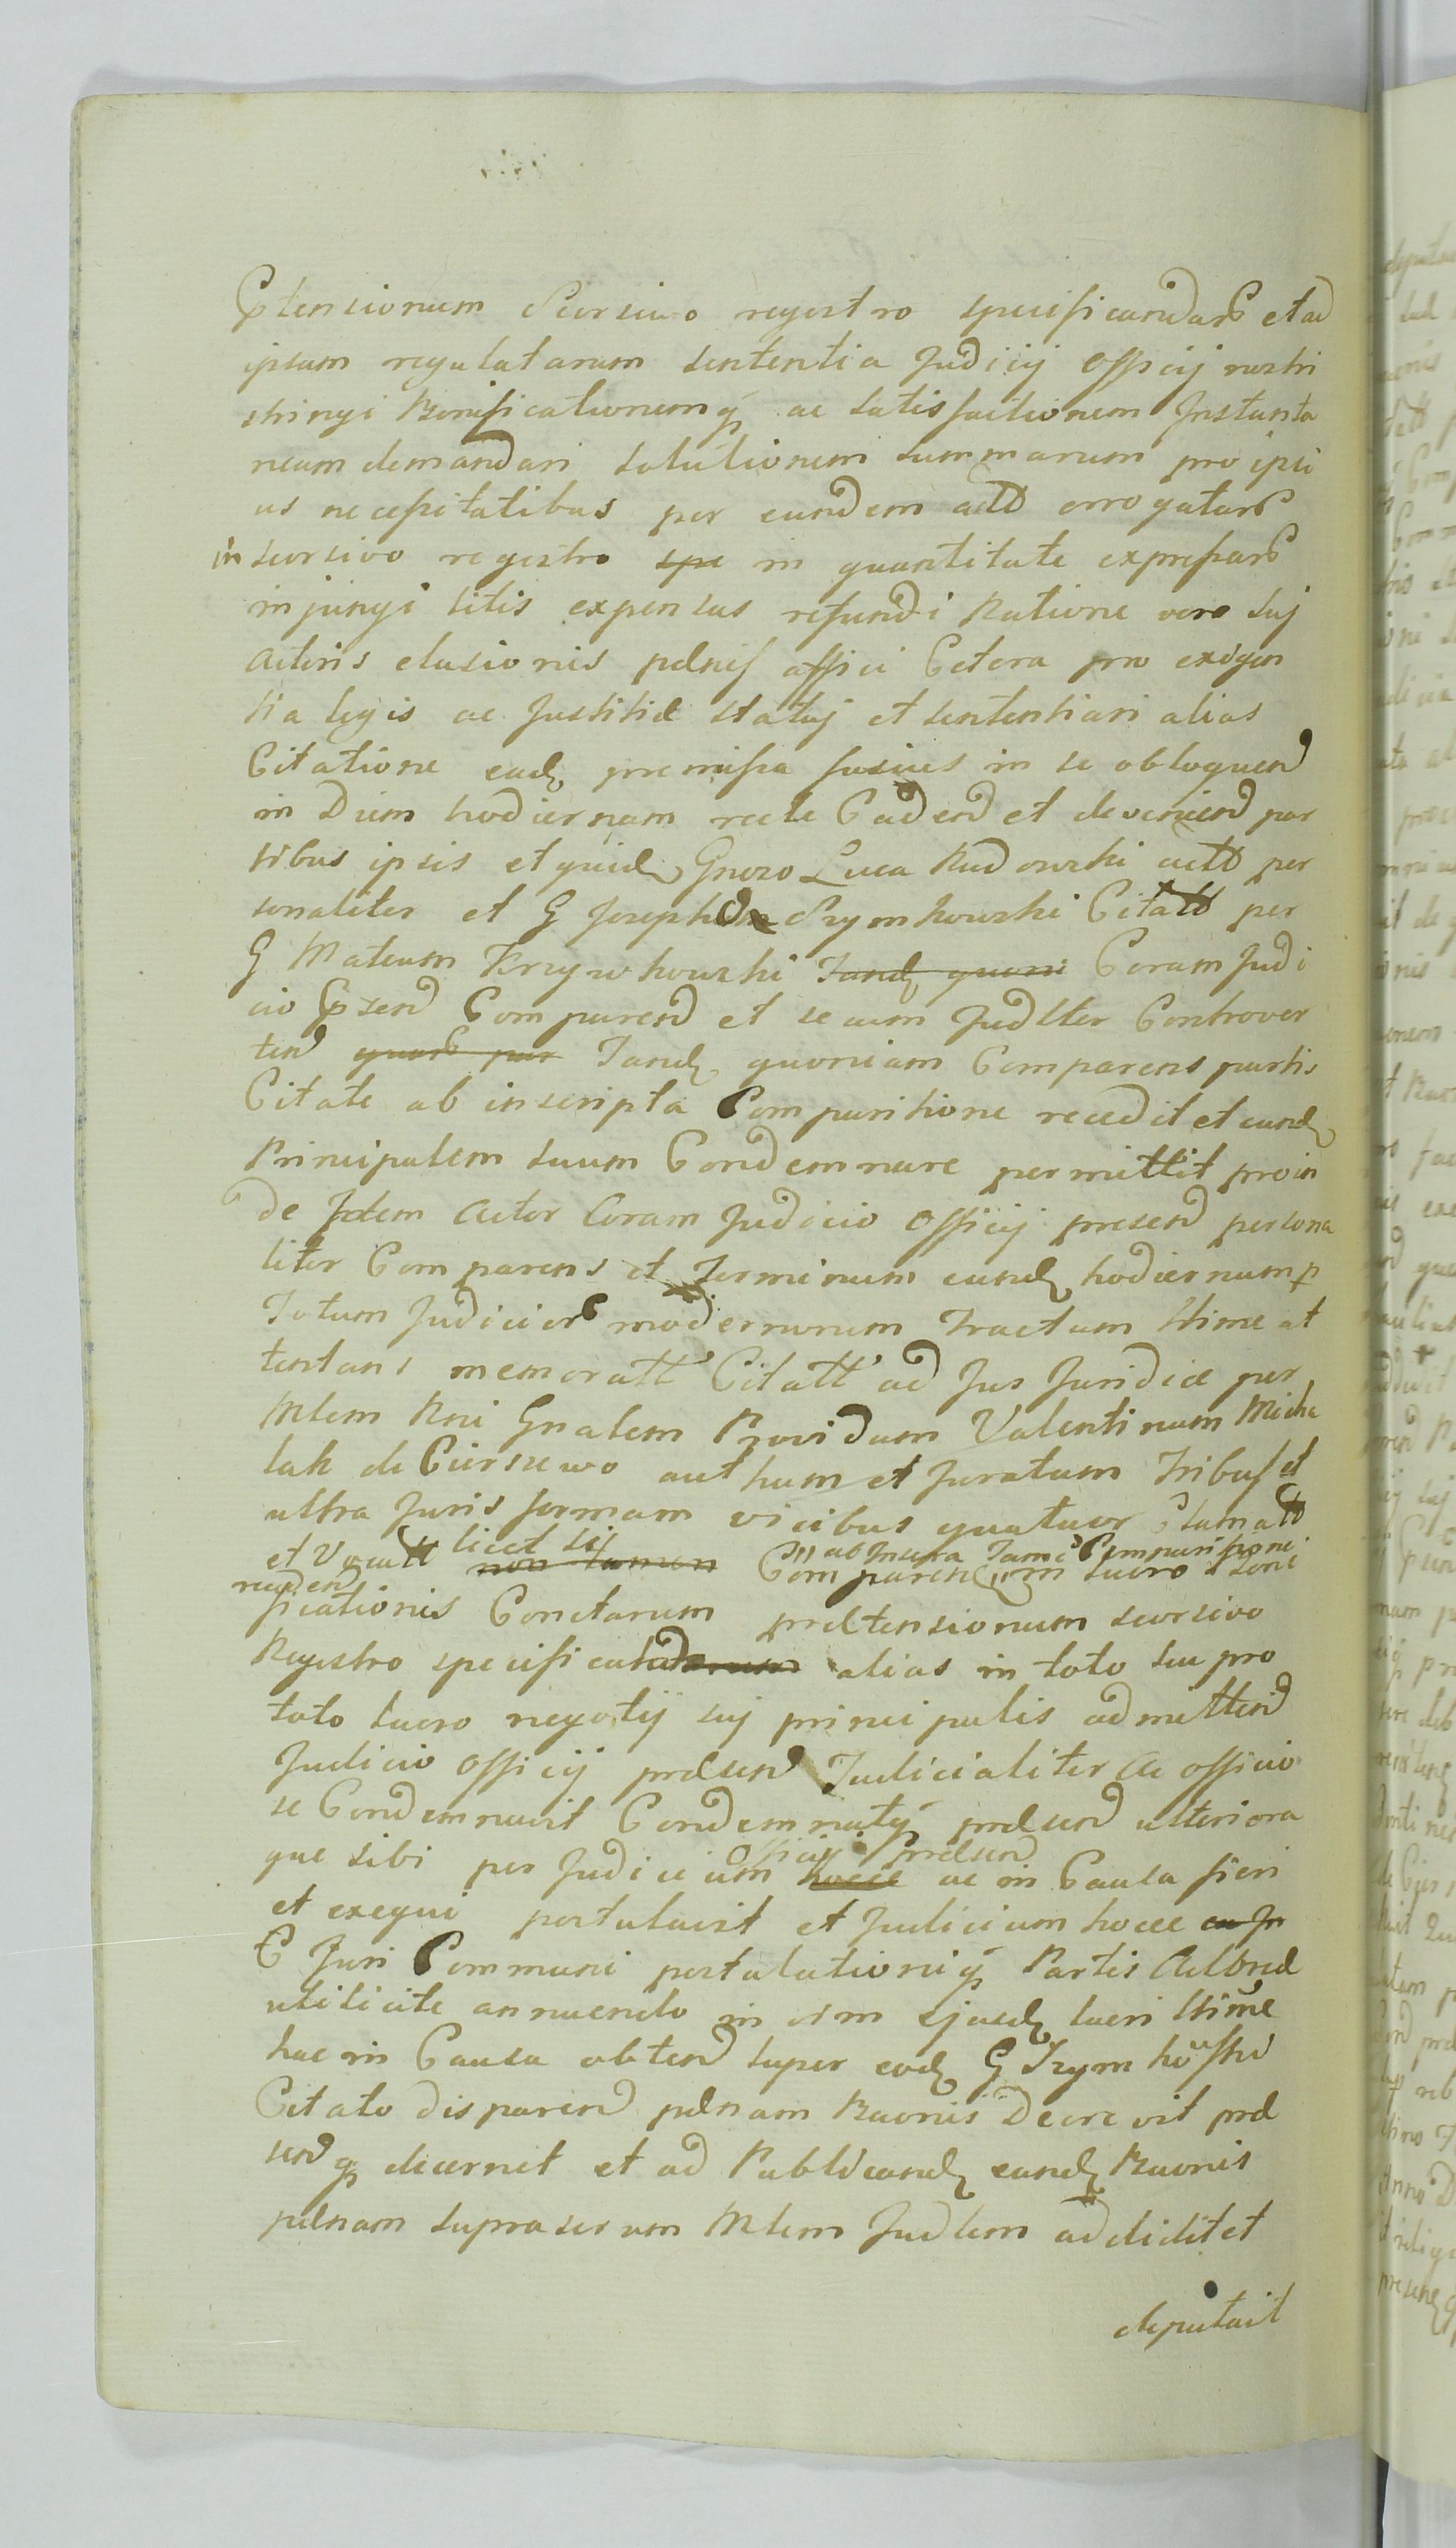 Ptensionum Seorsivo regestro specificandar et ad
ipsum regulatarum sententia Judicij Officij nostri
stringi Bonificationemq ac satisfactionem Instanta
neam demandari solutionem summarum pro ipsi
us necessitatibus per eundem actt errogatar
in seorsivo regestro spe in quantitate expressar
injungi litis expensas refundi Ratione vero suj
Actoris elusionis pænis affici Cetera pro exigen
tia legis ac Justitiæ statuj et sententiari alias
Citatione ead premissa fusius in se obloquen
in Diem hodiernam recte Caden et devenien par
tibus ipsis et quid Gneroso Luca Radowski actt per
sonaliter et G Josepho Szymkowski Citatt per
G Mateum Krzywkowski Tand quoni Coram Judi
cio Psen Comparen et secum Judlter Controver
ten quar par Tand quoniam Comparens partis
Citate ab inscripta Comparitione recedit et eund
Principalem suum Condemnare permittit proin
de Idem Actor Coram Judicio Officij presen persona
liter Comparens et Terminum eund hodiernum p
Totum Judicior modernorum Tractum ltime at
tentans memoratt Citatt ad Jus Juridice per
Mlem Rni Gnalem Providum Valentinum Micha
lak de Cierszewo authum et Juratum Tribus et
ultra Juris formam vicibus quatuor Clamatt
licet si ab Inscra Tam Comparitione
et Vocatt non tamen Comparen in lucro
receden
ficationis Conctarum prætensionum seorsivo
Regestro specificatar alias in toto seu pro
toto lucro negotij suj principalis admitten
Judicio Officij præsen Judicialiter ac officio
se Condemnavit Condemnatq præsen ulteriora
Officij præsen
que sibi per Judicium hocce ac in Causa fieri
et exequi postulavit et Judicium hocce ea Ju
E Juri Communi postulationiq Partis Actoreæ
utilicite annuendo in vim ejusd lucri ltime
hac in Causa obten super eod G Szymkowski
Citato disparen pænam Baonis Decrevit præ
senq decernit et ad Publicand eand Baonis
pænam suprascrum Mlem Judlem addidit et
deputavit